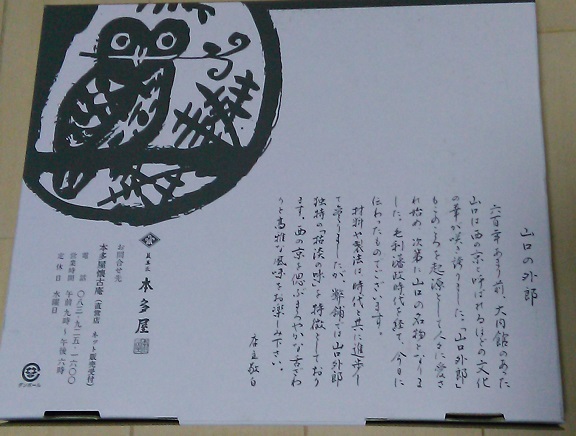 山口の外郎
六百年あまり前、大内館のあった
山口は西の京と呼ばれるほどの文化
の華が咲き誇りました。「山口外郎」
もそのころを起源として人々に愛さ
れ始め、次第に山口の名物となりま
した。毛利藩政時代を経て、今日に
伝わったものでございます。
材料や製法は時代と共に進歩し
て参りましたが、弊舗では山口外郎
独特の「枯淡の味」を特徴としており
ます。西の京を偲ぶまろやかな舌ざわ
りと高雅な風味をお楽しみ下さい。
店主敬白
本多屋
お問合せ先
本多屋懐古庵(直営店 ネット販売受付)
電話 〇八三-九二五-一六〇〇
営業時間 午前九時~午後六時
定休日 水曜日
ダンボール